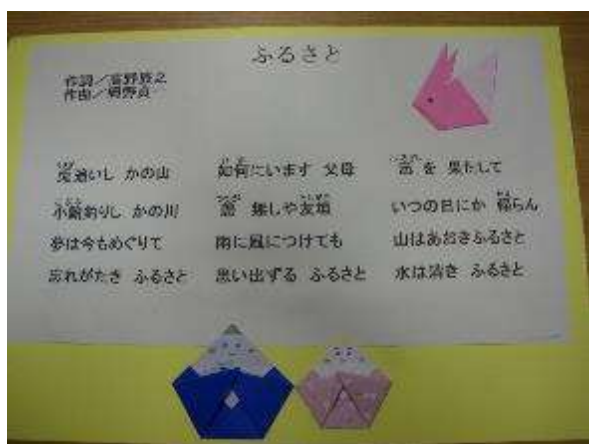 ふるさと
作詞／高野辰之
作曲／岡野貞
兎追いし かの山
小鮒釣りし かの川
夢は今もめぐりて
忘れがたき ふるさと
如何にいます 父母
恙 無しや友垣
雨に風につけても
思い出ずる ふるさと
志 を 果たして
いつの日にか 帰らん
山はあおきふるさと
水は清き ふるさと